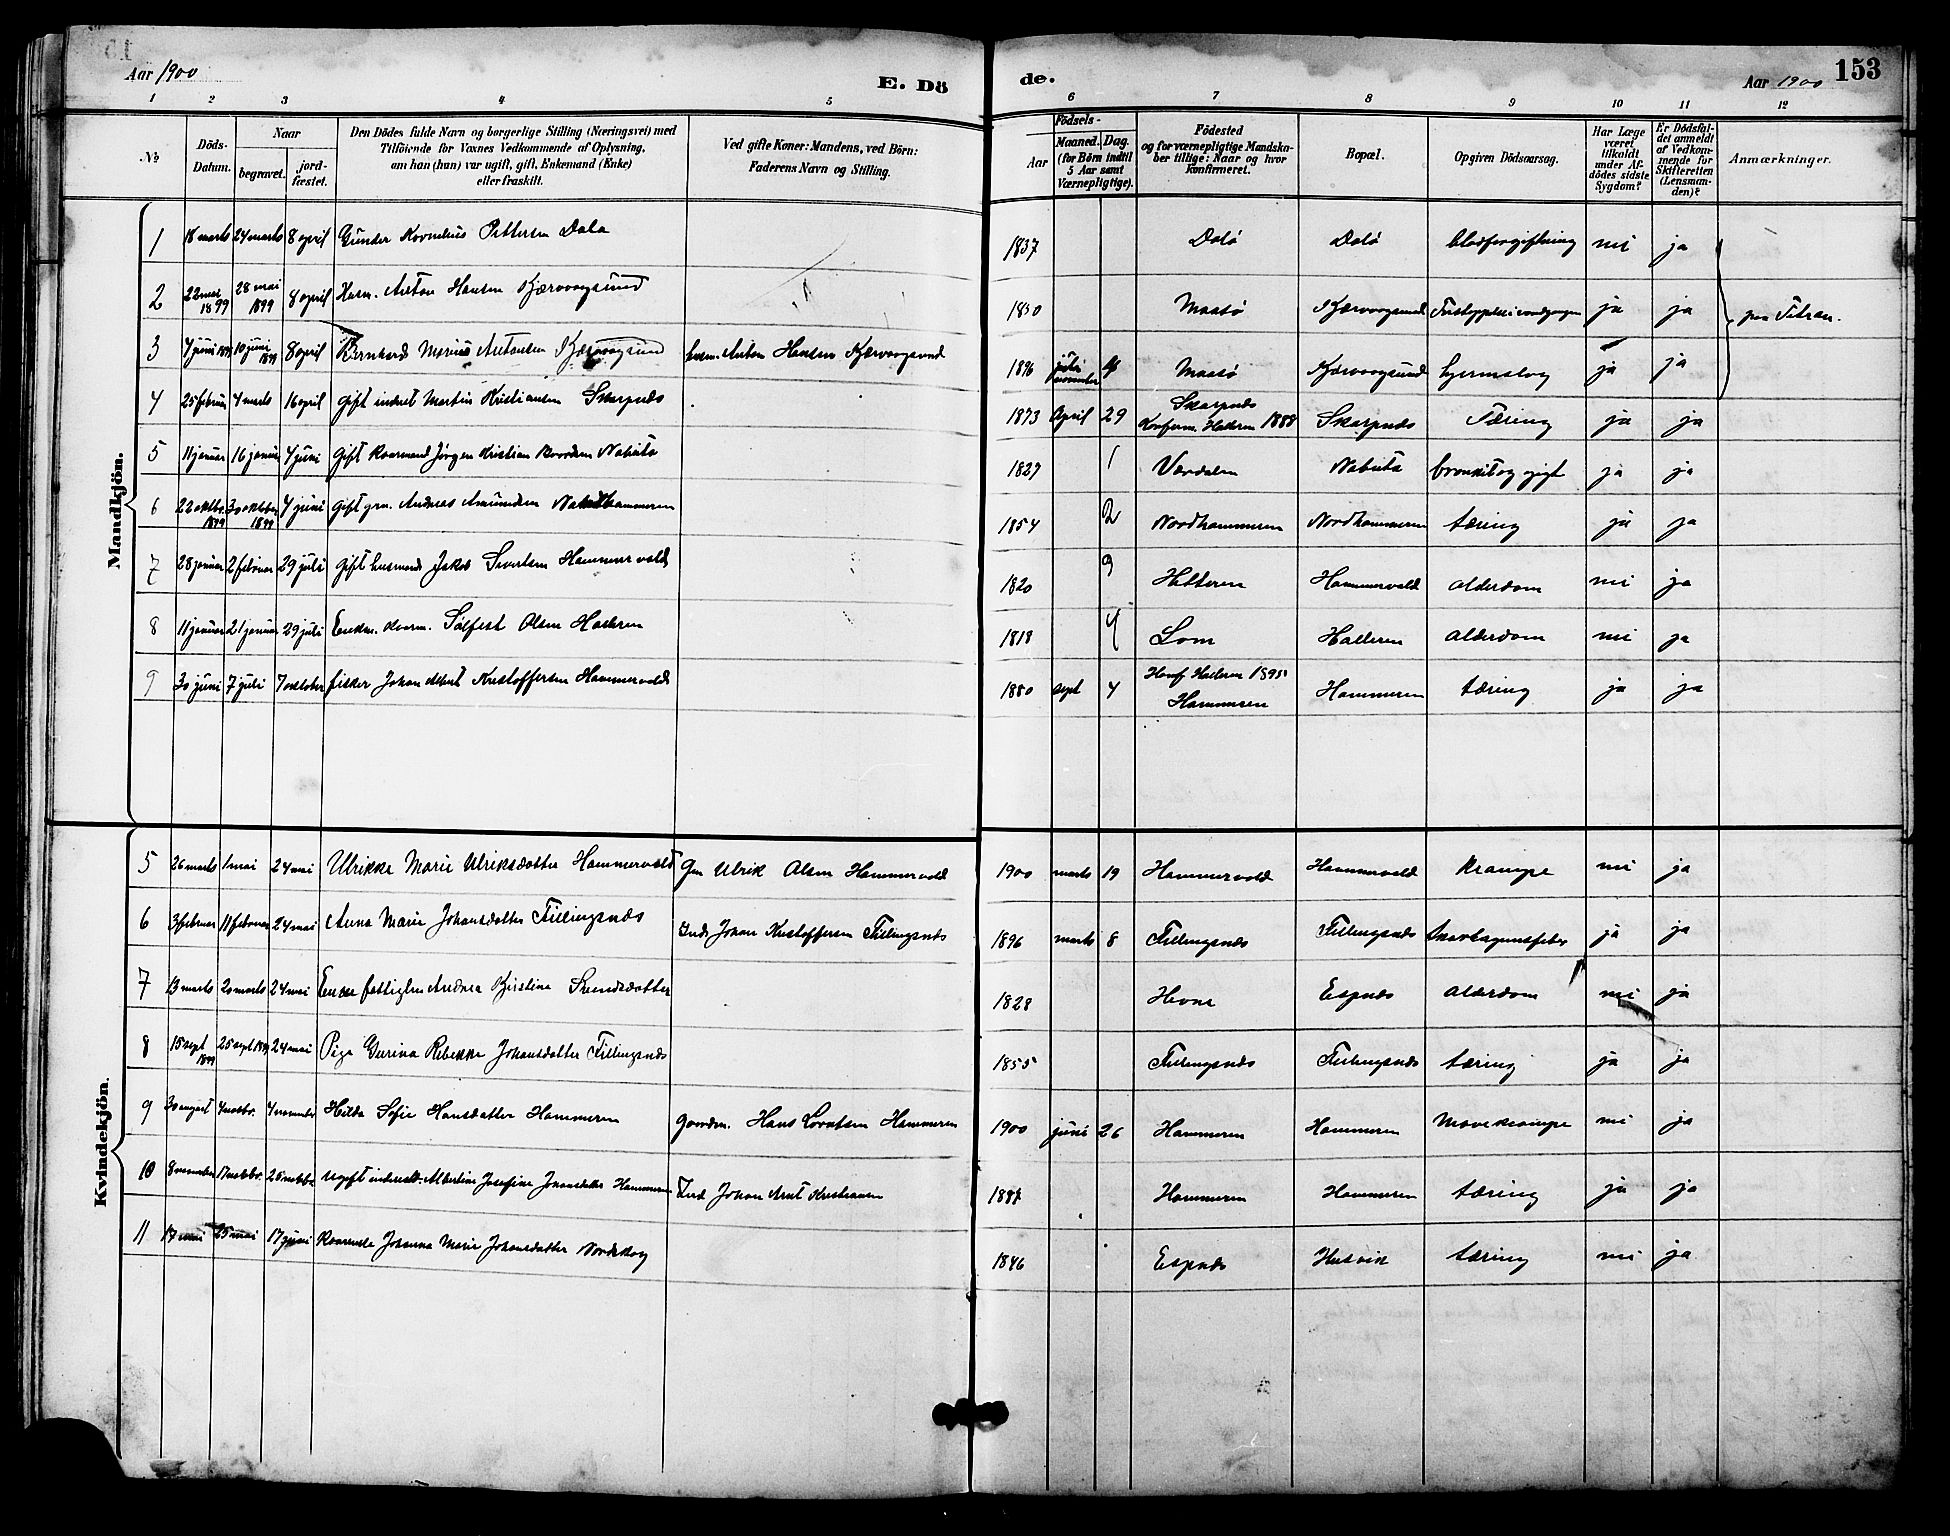 Aar 1900
E. Dö
de.
Aar 1900
153
1 2 3 4 5 6 7 8 9 10 11 12
№
Döds-Datum.
Naar
begravet.
jord-fæstet.
Den Dödes fulde Navn og borgerlige Stilling (Næringsvei) med
Tilföiende for Voxnes Vedkommende af Oplysning,
om han (hun) var ugift, gift, Enkemand (Enke)
eller fraskilt.
Ved gifte Koner: Mandens, ved Börn:
Faderens Navn og Stilling.
Födsels-
Aar
Maaned. Dag.
(for Børn indtil
5 Aar samt
Værnepligtige).
Födested
og for værnepligtige Mandska-
ber tillige: Naar og hvor
konfirmeret.
Bopæl.
Opgiven Dödsaarsag.
Har Læge
været
tilkaldt
under Af-
dödes sidste
Sygdom?
Er Dödsfal-
det anmeldt
af Vedkom-
mende for
Skifteretten
(Lensman-
den)?
Anmærkninger.
Mandkjön.
1 18 marts 24 marts 8 april Gunder Kornelius Pettersen Dalø 1837 Dalø Dalø blodforgiftning nei ja
2 22 mai 1899 28 mai 1899 8 april Husm. Anton Hansen Kjærvaagsund 1850 Maasø Kjærvaagsund ja ja paa Titran.
3 4 juni 1899 10 juni 1899 8 april Bernhard Marius Antonsen Kjærvaagsund husm. Anton Hansen Kjærvaagsund 1896 november 4 Maasø Kjærvaagsund ja ja
4 25 februar 4 marts 16 april gift inderst Martin Kristiansen Skarpnæs 1873 April 29 Skarpnæs Konfirm. Halleren 1888 Skarpnæs Tæring ja ja
5 11 januar 16 januar 4 juni gift Kaarmand Jørgen Kristian 1829 1 Værdalen bronkit og gigt ja ja
6 22 oktbr. 1899 30 oktober 1899 4 juni gift grn. Andreas Amundsen Nordhammeren 1854 2 Nordhammeren Nordhammeren tæring ja ja
7 28 januar 2 februar 29 juli gift husmand Jakob Sivertsen Hammervold 1820 3 Hitteren Hammervold alderdom nei ja
8 11 januar 21 januar 29 juli Enkm. Sølfest Olsen Halleren 1818 4 Lom Halleren alderdom nei ja
9 30 juni 7 juli 7 oktober fisker Johan Albert Kristoffersen Hammervold 1880 sept 4 Konf Halleren 1895 Hammeren Hammeren tæring ja ja
Kvindekjön.
5 26 marts 1 mai 24 mai Ulrikke Marie Ulriksdatter Hammervold Gm Ulrik Olsen Hammervold 1900 marts 19 Hammervold Hammervold Krampe nei ja
6 3 februar 11 februar 24 mai Anna Marie Johansdatter Fillingsnæs Inds Johan Kristoffersen Fillingsnæs 1896 marts 8 Fillingsnæs Fillingsnæs skarlagensfeber ja ja
7 13 marts 20 marts 24 mai Enke fattiglem Andrea Kristine Svendsdatter 1828 Hevne Espnæs Alderdom nei ja
8 15 sept 1899 25 sept 1899 24 mai Pige Gurina Rebekka Johansdatter Fillingsnæs 1855 Fillingsnæs Fillingsnæs tæring ja ja
9 30 august 4 novbr. 4 november Hilda Sofie Hansdatter Hammeren Gaardm. Hans Lorntsen Hammeren 1900 juni 26 Hammeren Hammeren Mavekrampe nei ja
10 8 november 17 novbr. 25 novbr. ugift inderst Albertine Josefine Johansdatter Hammeren Inds Johan Arnt Kristiansen Hammeren Hammeren tæring ja ja
11 17 mai 25 mai 17 juni Johanna Marie Johansdatter Nordskog 1846 Espnæs Husvik tæring nei ja